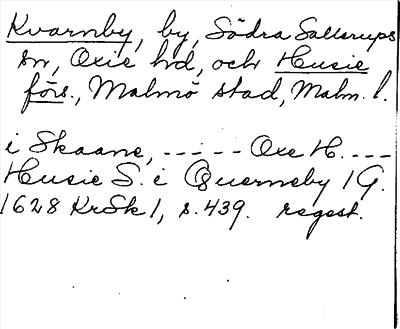 Kvarnby, by, Södra Sallerups
sn, Oxie hd, och Husie
förs., Malmö stad, Malm. l.
i Skaane, - - - - - Oxe H. - - - -
Husie S. i Querneby 1 G.
1628 KrSk 1, s. 439. regest.